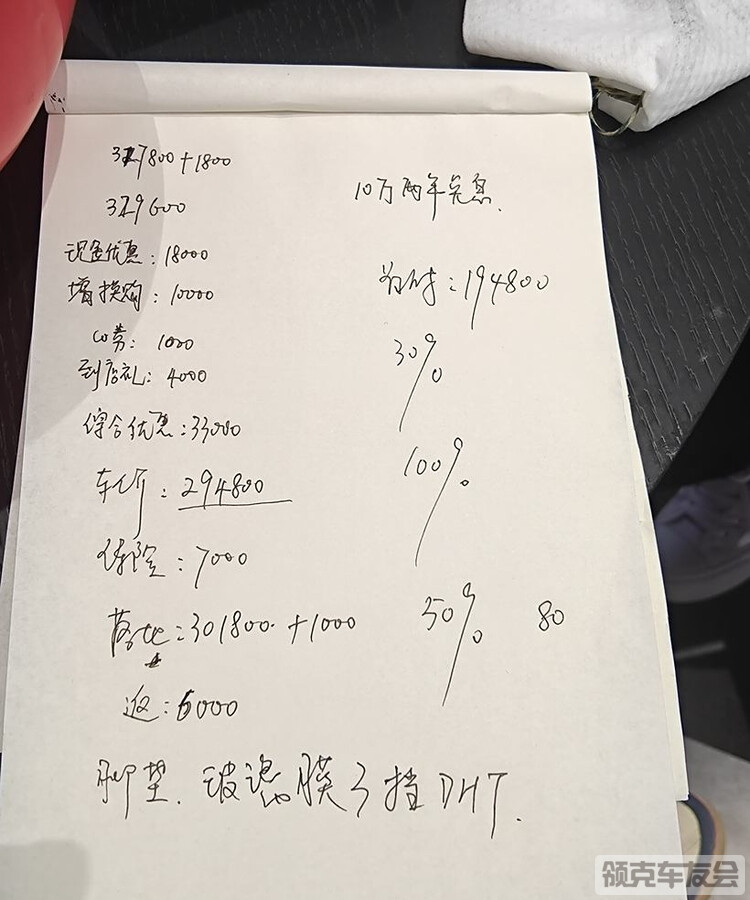 327800+1800
329600
现金优惠：18000
增换购：10000
co券：1000
到店礼：4000
综合优惠：33000
车价：294800
保险：7000
落地：301800+1000
返：6000
脚垫、玻璃膜 3挡DHT.
10万两年免息、
首付：194800
30%
100%
50% 80
领克车友会